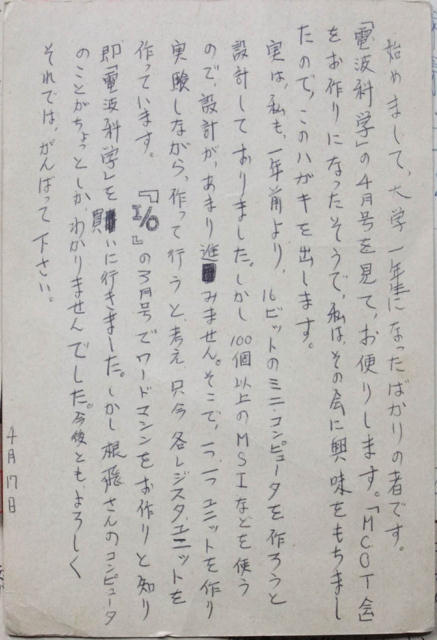 始めまして、大学一年生になったばかりの者です。
「電波科学」の4月号を見て、お便りします。「MCOT会」
をお作りになったそうで、私は、その会に興味をもちまし
たので、このハガキを出します。
実は、私も、一年前より、16ビットのミニ・コンピュータを作ろうと
設計しておりました。しかし100個以上のMSIなどを使う
ので、設計が、あまり進みません。そこで、一つ一つユニットを作り
実験しながら、作って行うと、考え、只今各レジスタ、ユニットを
作っています。『I/O』の3月号でワードマシンをお作りと知り
即「電波科学」を買いに行きました。しかし根隠さんのコンピュータ
のことがちょっとしかわかりませんでした。今後とも、よろしく
それでは、がんばって下さい。
4月17日